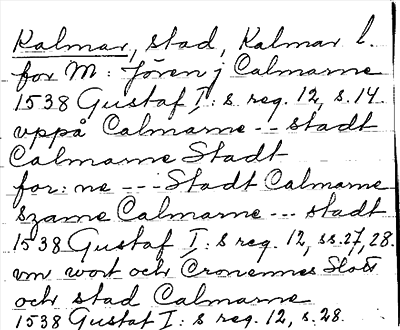 Kalmar, stad, Kalmar l.
for M: Jören j Calmarne
1538 Gustaf I: s reg. 12, s. 14.
vppå Calmarne -- stadt
Calmarne Stadt
for: ne --- Stadt Calmarne
szame Calmarne --- stadt
1538 Gustaf I: s reg. 12, ss. 27, 28.
vm wort och Cronennes Slott
och stad Calmarne
1538 Gustaf I: s reg. 12, s. 28.